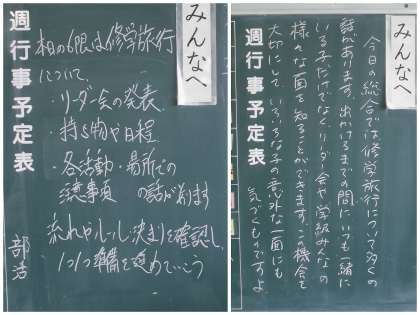 みんなへ
本日の6限は修学旅行
について、
・リーダー会の発表
・持ち物や日程
・各活動・場所での
注意事項 の話があります
流れやルール・決まりを確認し、
1つ1つ準備を進めていこう
週行事予定表
部活
みんなへ
今日の総合では修学旅行について多くの
話があります。出かけるまでの間にいつも一緒に
いる子だけでなく、リーダー会や学級みんなの
様々な面を知ることができます。この機会を
大切にして、いろいろな子の意外な一面にも
気づくものですよ
週行事予定表